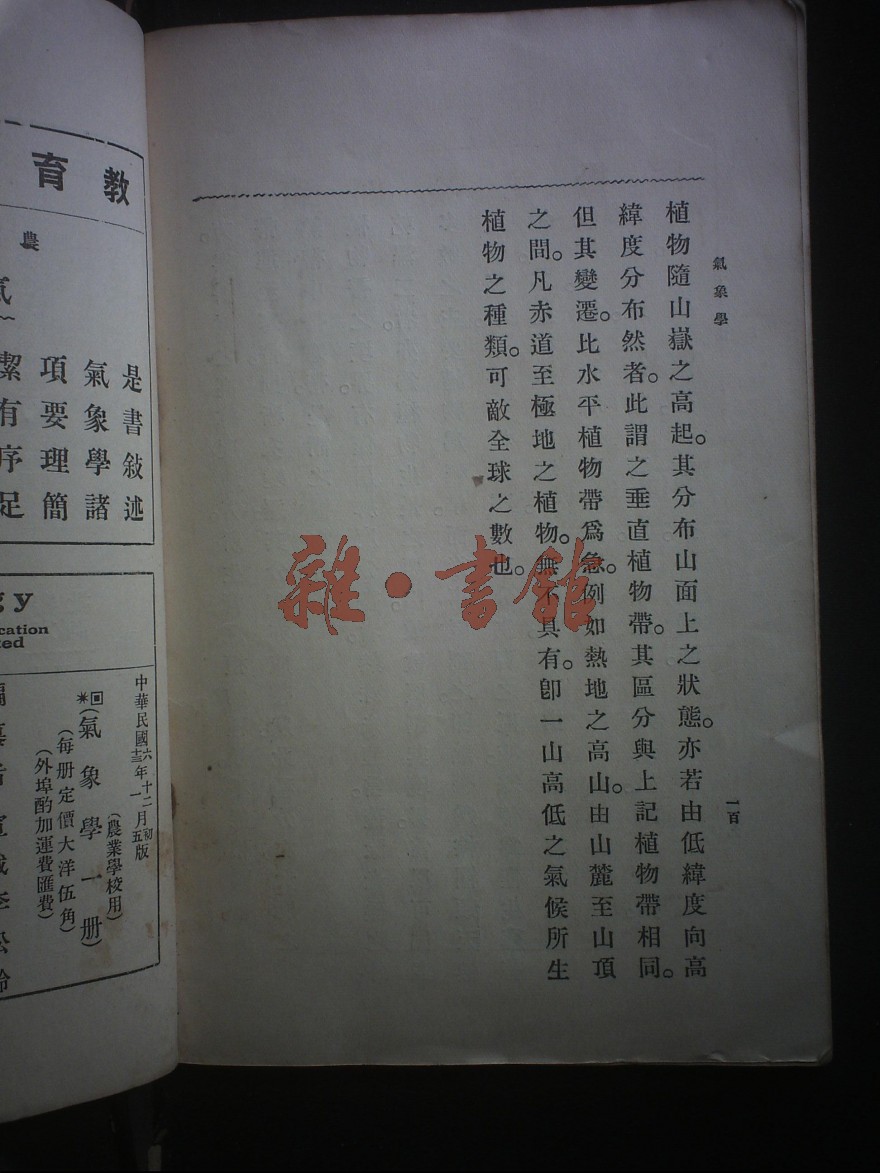 氣象學
一百
植物隨山嶽之高起。其分布山面上之狀態。亦若由低緯度向高
緯度分布然者。此謂之垂直植物帶。其區分與上記植物帶相同。
但其變遷。比水平植物帶爲急。例如熱地之高山。由山麓至山頂
之間。凡赤道至極地之植物。無不具有。卽一山高低之氣候所生
植物之種類。可敵全球之數也。
雜·書館
教育
農
氣
是書敍述
氣象學諸
項要理簡
潔有序足
gy
cation
ted
中華民國六年十二月初版
十三 一 五
(農業學校用)
(氣象學一册)
(每册定價大洋伍角)
(外埠酌加運費匯費)